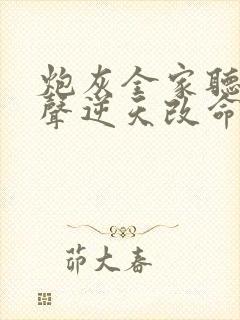 炮灰全家聽
聲逆天改命
茆大春